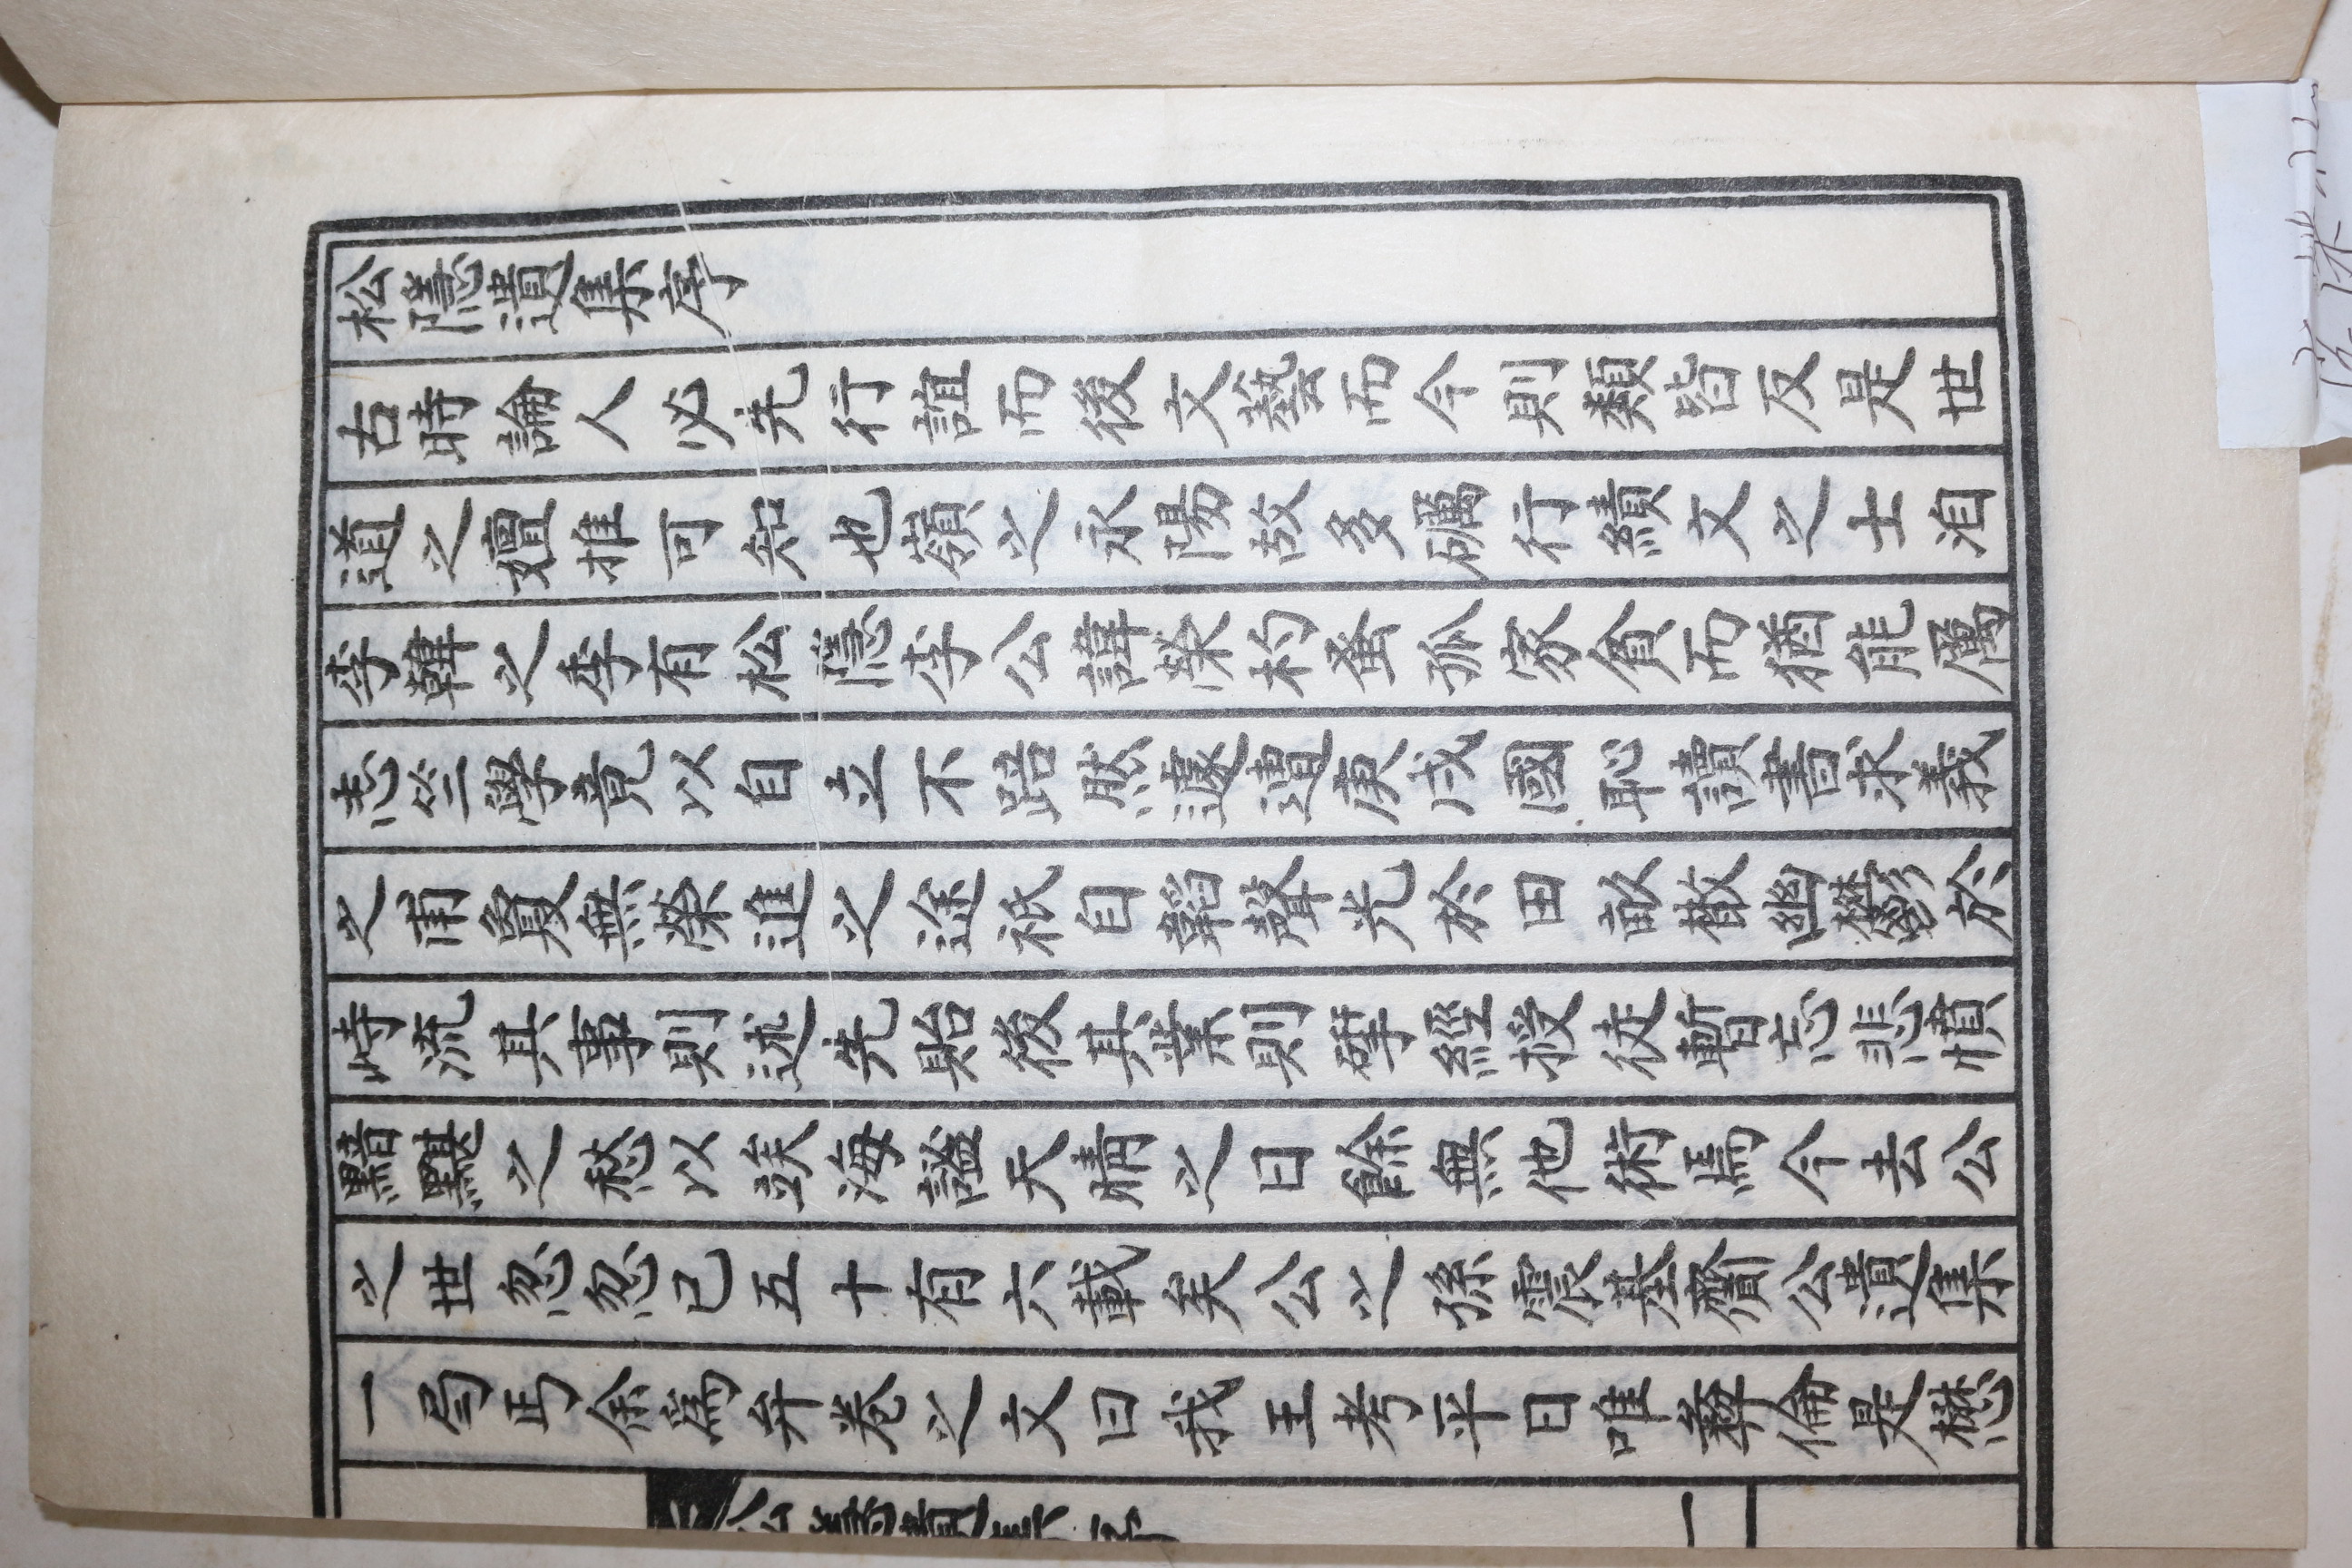 松隱遺集序
古時論人必先行誼而後文藝而今則類皆反是世
道之嬗推可知也嶺之永陽故多礪行績文之士洎
李韓之季有松隱李公諱榮杓蚤孤家貧而猶能厲
志竺學竟以自立不踣然遽遭庚戌國恥讀書求義
之甫敻無榮進之途祇自韜聲光於田畝樷幽鬱於
峙流其事則述先貽後其業則硏經授徒暫忘悲憤
黯黮之愁以竢海謐天晴之日餘無他術焉今去公
之世忽忽已五十有六載矣公之孫震基齎公遺集
一局丐余爲弁卷之文曰我王考平日唯彝倫是懋
松隱遺集序
一